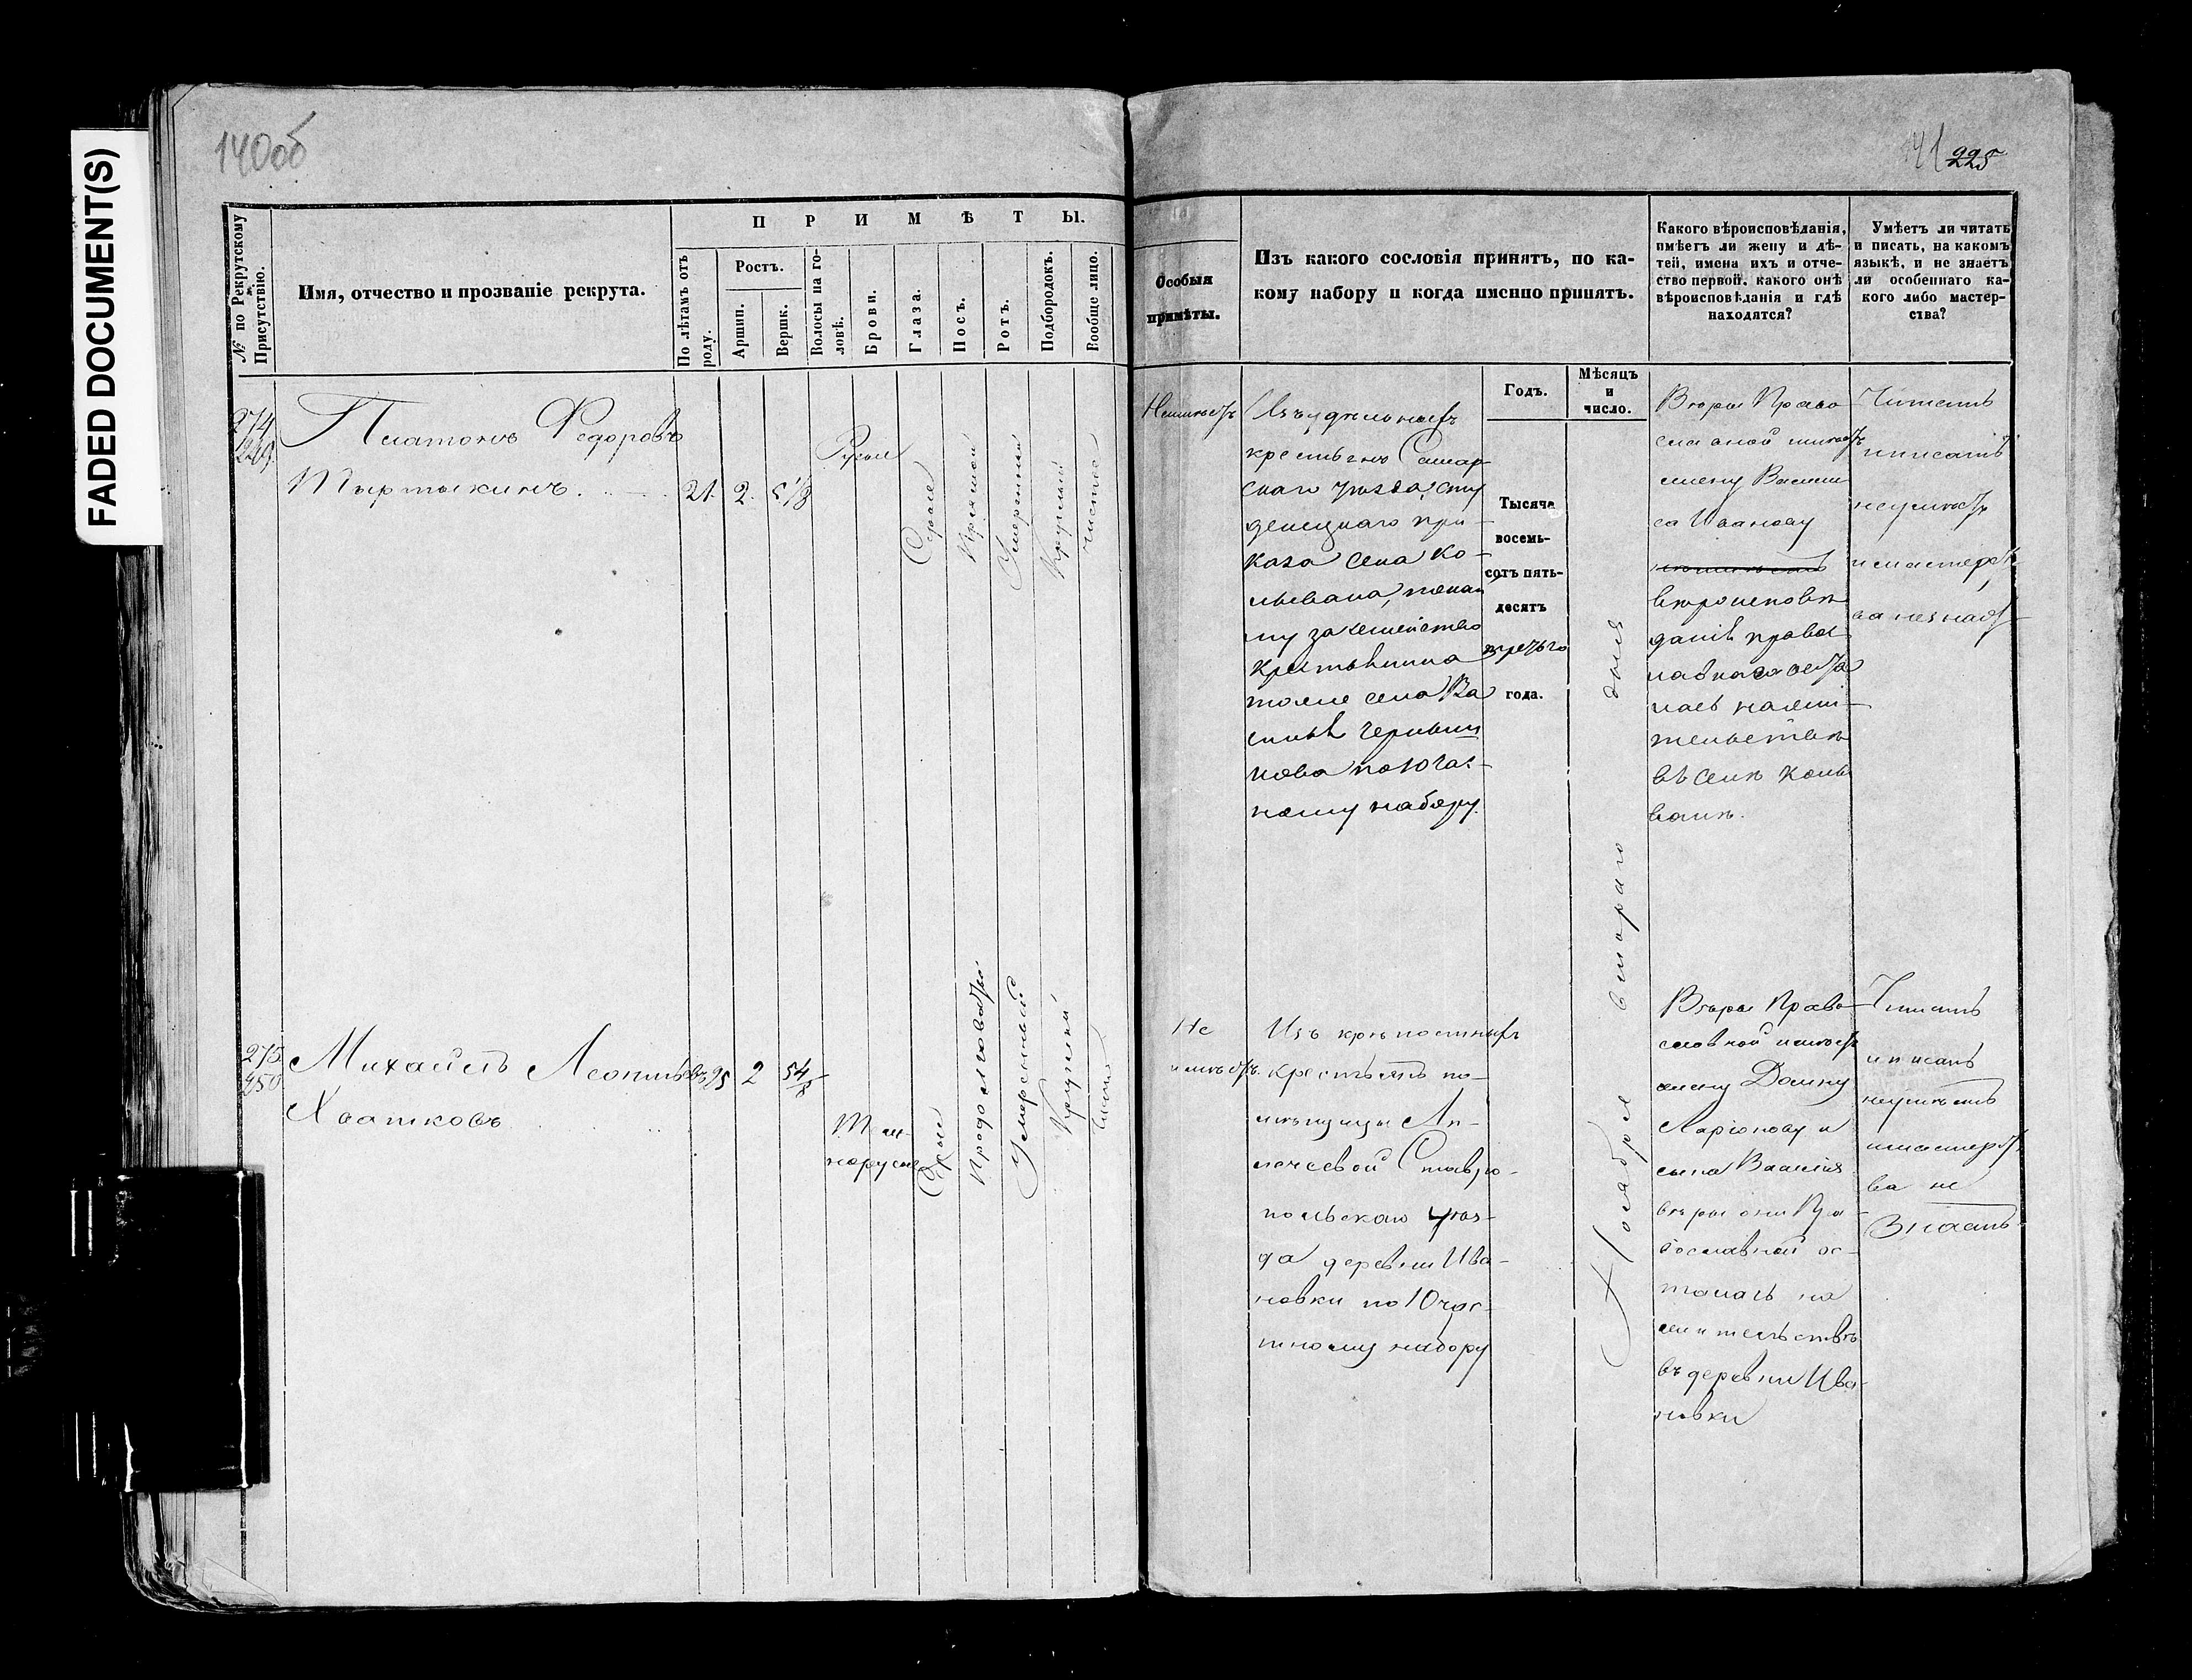 FADED DOCUMENT(S)
140об
141 225
№ по Рекрутскому Присутствію.
Имя, отчество и прозваніе рекрута.
ПРИМѢТЫ.
По лѣтамъ отъ роду.
Ростъ.
Аршин.
Вершк.
Волосы на головѣ.
Брови.
Глаза.
Носъ.
Ротъ.
Подбородокъ.
Вообще лицо.
Особыя
примѣты.
Изъ какого сословія принятъ, по ка-
кому набору и когда именно принятъ.
Какого вѣроисповѣданія,
имѣетъ ли жену и дѣ-
тей, имена ихъ и отче-
ство первой. какого онѣ
вѣроисповѣданія и гдѣ
находятся?
Умѣетъ ли читать
и писать, на какомъ
языкѣ, и не знаетъ
ли особеннаго ка-
кого либо мастер-
ства?
Годъ.
Мѣсяцъ
и
число.
274
Платонъ Федоровъ
Тыртыкинъ. 21. 2. 5 1/8
Русые
Сѣрые
Прямой
Умеренный
Круглый
чистое
Неимѣетъ
Изъ удельныхъ
крестьянъ Самар
скаго уѣзда, сту
денецкаго при-
каза села Ко-
лывана,
за семейство
крестьянина
тогоже села Ва
силья
по 10 час-
ному набору.
Тысяча
восемь-
сотъ пять-
десятъ
третьго
года.
Ноября втораго дня
Вѣры Право
славной имѣетъ
жену Васили
су Иванову
вѣроисповѣ
даніѣ правос
лавнаго оста
лась нажи-
тельствѣ
въ селѣ Колы
ванѣ.
Читать
иписать
неумѣетъ
имастерст
ва незнаетъ
275
450
Михайлъ Леонтьевъ 25 2 5 4/8
Хватковъ
Тем-
норусые
Сѣрые
Продолговатый
Умеренный
Круглый
чистое
Не
имѣетъ.
Изъ крѣпостныхъ
крестьянъ по-
мѣщицы Ап-
лечеевой Ставро-
польскаго уѣз-
да деревни Ива-
новки по 10 час-
тному набору
Вѣры Право-
славной имѣетъ
жену Домну
Ларіонову и
сына Василия
вѣры они Пра-
вославной ос-
талась на
жительствѣ
въ деревни Ива-
новки
Читать
иписать
неумѣетъ
имастерст
ва не
знаетъ